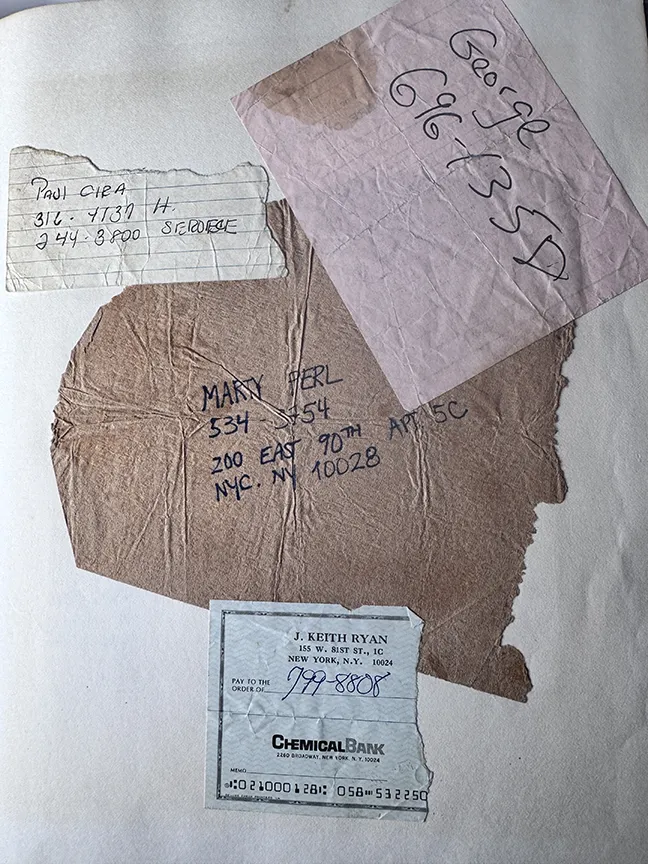 George
696-1350
PAUL CIRA
316-4737 H.
244-3800
MARTY PERL
534-5754
200 EAST 90TH APT 5C
NYC. NY 10028
J. KEITH RYAN
155 W. 81ST ST., 1C
NEW YORK, N.Y. 10024
PAY TO THE
ORDER OF 799-8808
CHEMICALBANK
2260 BROADWAY, NEW YORK, N.Y. 10024
MEMO
⑆021000128⑆ 058⑉532250